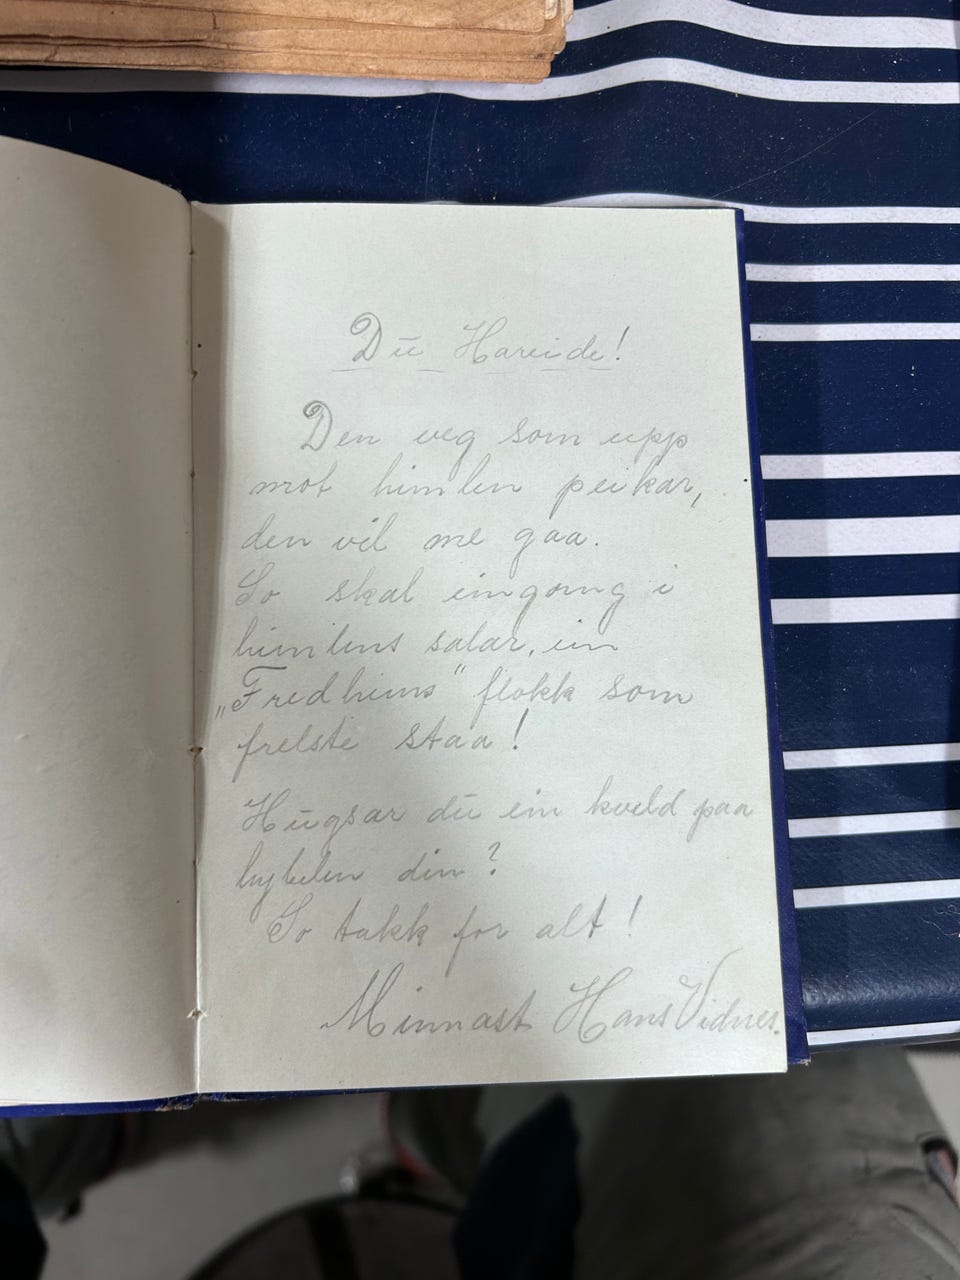 Du Hareide!
Den veg som upp
mot himlen peikar,
den vil me gaa.
So skal eingong i
himlens salar, ein
„Fredheims" flokk som
frelste staa!
Hugsar du ein kveld paa
hybelen din?
So takk for alt!
Minnast Hans Vidnes.